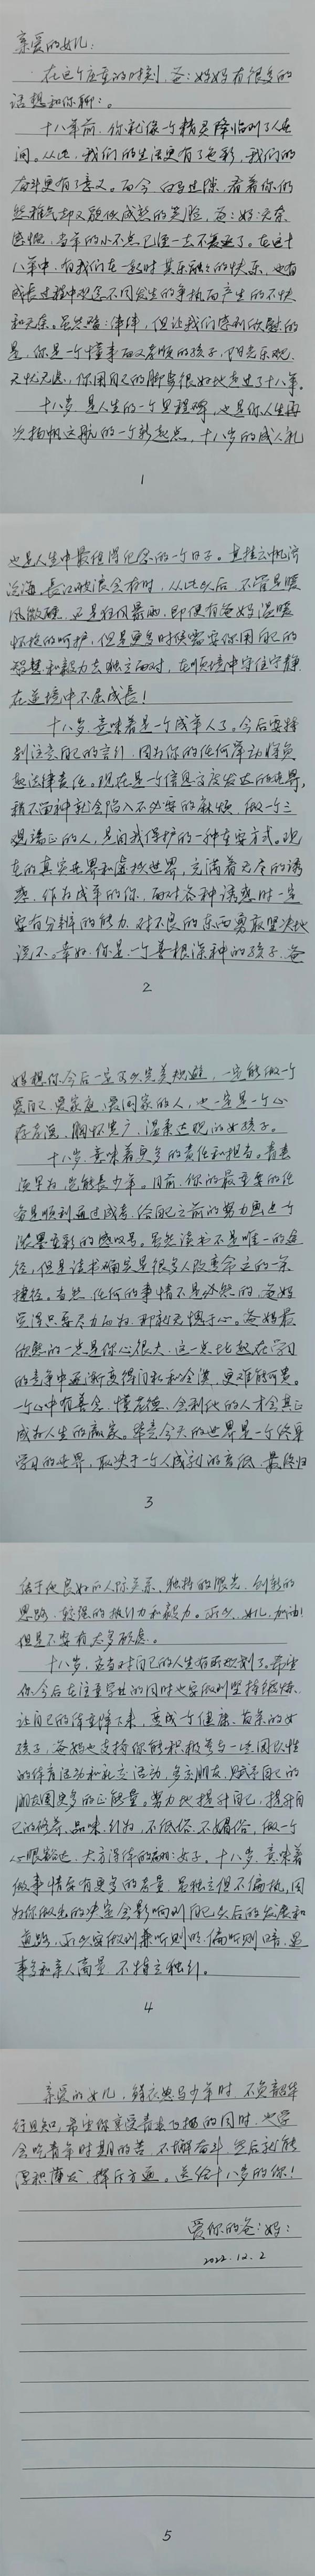 亲爱的女儿:
在这个庄重的时刻,爸:妈妈有很多的
话想和你聊:。
十八年前,你就像一个精灵降临到了人世
间。从此,我们的生活更有了色彩,我们的
奋斗更有了意义。而今,白驹过隙,看着你仍
然稚气却又貌似成熟的笑脸,爸:妈:无奈
感慨,当年的小不点已经一去不复返了。在这十
八年中,有我们在一起时其乐融融的快乐,也有
成长过程中观念不同发生的争执而产生的不快
和无奈。虽然磕:绊绊,但让我们感到欣慰的
是,你是一个懂事而又孝顺的孩子,阳光乐观,
无忧无虑,你用自己的脚步很好地走过了十八年。
十八岁,是人生的一个里程碑,也是你人生再
次扬帆远航的一个新起点,十八岁的成人礼
1
也是人生中最值得纪念的一个日子。直挂云帆济
沧海,长风破浪会有时,从此以后,不管是暖
风微硬,还是狂风暴雨,即便有爸妈温暖
怀抱的呵护,但是更多时候需要你用自己的
智慧和毅力去独立面对,在顺境中守住宁静,
在逆境中不屈成长!
十八岁,意味着是一个成年人了。今后要特
别注意自己的言行,因为你的任何举动将负
起法律责任。现在是一个信息高度发达的世界,
稍不留神就会陷入不必要的麻烦,做一个三
观端正的人,是自我保护的一种重要方式。现
在的真实世界和虚拟世界,充满着无尽的诱
惑,作为成年的你,面对各种诱惑时一定
要有分辨的能力,对不良的东西勇敢坚决地
说不。幸好,你是一个善根深种的孩子,爸
2
妈想你今后一定可以完美规避,一定能做一个
爱自己、爱家庭、爱国家的人,也一定是一个心
存善流,胸怀宽广,温柔达观的女孩子。
十八岁,意味着更多的责任和担当。青春
须早为,岂能长少年。目前,你的最重要的任
务是顺利通过成考,给自己之前的努力画上个
浓墨重彩的感叹号。虽然读书不是唯一的途
径,但是读书确实是很多人改变命运的一条
捷径。当然,任何的事情不是必然的,爸妈
觉得只要尽力而为,那就无愧于心。爸妈最
欣慰的一点是你心很大,这一点比起在学习
的竞争中逐渐变得自私和全浇,更难能可贵。
一个心中有善念,懂孝德,会利他的人才会真正
成为人生的赢家。毕竟今天的世界是一个终身
学习的世界,取决于一个人成就的高低,最终归
3
结于他良好的人际关系、独特的眼光、创新的
思路、较强的执行力和毅力。所以,女儿,加油!
但是不要有太多顾虑。
十八岁,应当对自己的人生有所规划了。希望
你今后在注重学业的同时也要做到坚持锻炼,
让自己的体重降下来,变成一个健康、苗条的女
孩子,爸妈也支持你能积极参与一些团队性
的体育活动和社交活动,多交朋友,赋予自己的
朋友圈更多的正能量。努力地提升自己,提升自
己的修养、品味、行为,不低俗、不媚俗,做一个
心眼豁达、大方得体的成功女子。十八岁,意味着
做事情应有更多的考量,要独立但不偏执,因
为你做出的决定会影响到自己以后的发展和
道路,所以要做到兼听则明,偏听则暗,遇
事多和亲人商量,不特立独行。
4
亲爱的女儿,鲜衣怒马少年时,不负韶华
行且知,希望你享受青春飞扬的同时,也学
会吃青年时期的苦,不懈奋斗,然后就能
厚积薄发,挥斥方遒。送给十八岁的你!
爱你的爸:妈:
2022.12.2
5